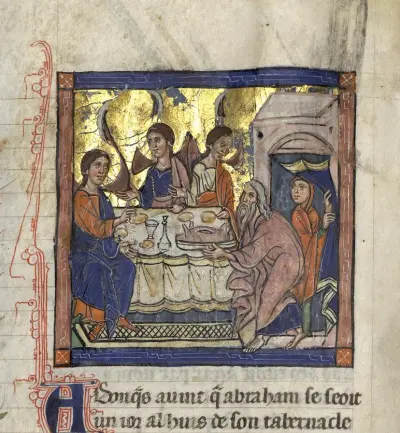 A Donq̄s auint q̄ abraham se seoit
un ior al huis de son tabernacle